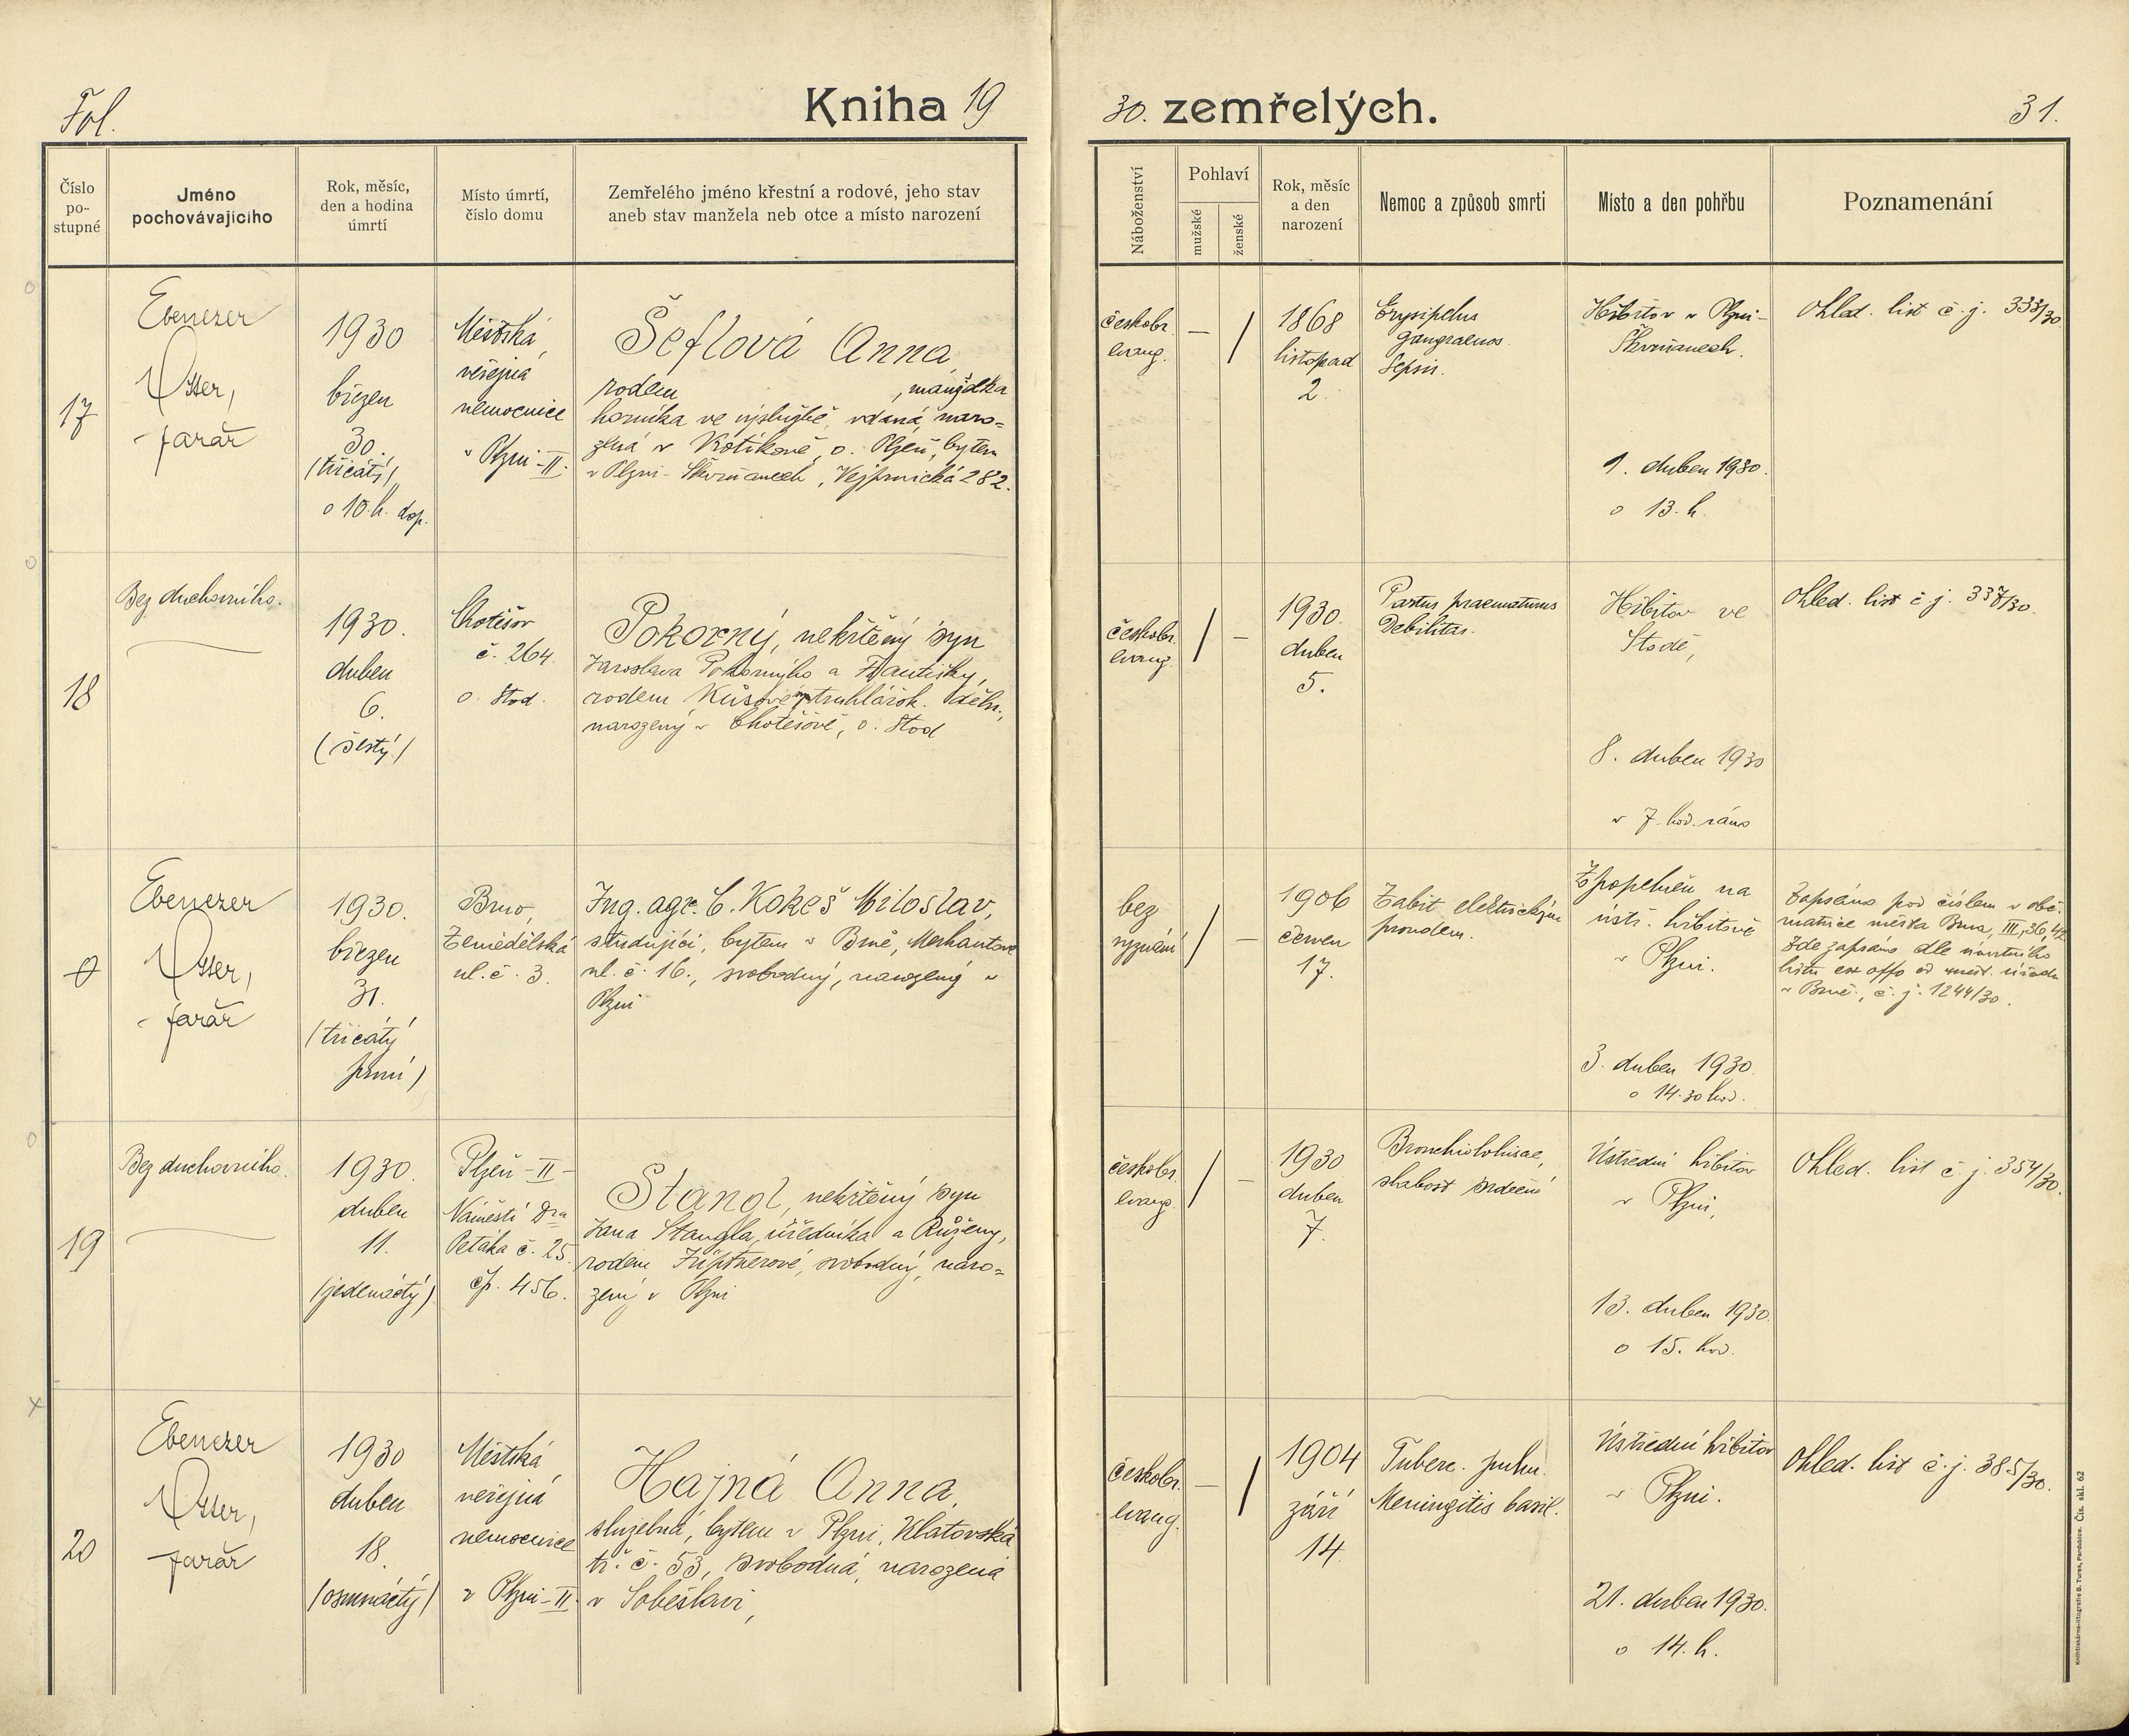 Fol.
Kniha 19
30. zemřelých.
31.
Číslo
po-
stupné
Jméno
pochovávajícího
Rok, měsíc,
den a hodina
úmrtí
Místo úmrtí,
číslo domu
Zemřelého jméno křestní a rodové, jeho stav
aneb stav manžela neb otce a místo narození
Náboženství
Pohlaví
mužské
ženské
Rok, měsíc
a den
narození
Nemoc a způsob smrti
Místo a den pohřbu
Poznamenání
17
Ebenezer
Otter,
farář
1930
březen
30.
(třicátý)
o 10. h. dop.
Městská
veřejná
nemocnice
v Plzni-II.
Šeflová Anna,
rodem , manželka
horníka ve výslužbě, vdaná, naro-
zená v Kotíkově, o. Plzeň, bytem
v Plzni-Škvrňanech, Vejprnická 282.
českobr.
evang.
–
/
1868
listopad
2.
Erysipelus
gangraenos.
Sepsis.
Hřbitov v Plzni-
Škvrňanech.
1. duben 1930.
o 13. h.
Ohled. list č. j. 333/30
18
Bez duchovního.
1930.
duben
6.
(šestý)
Chotěšov
č. 264.
o. Stod.
Pokorný, nekřtěný syn
Jaroslava Pokorného a Františky,
rodem truhlářsk. děln.,
narozený v Chotěšově, o. Stod
českobr.
evang.
/
–
1930.
duben
5.
Partus praematurus
Debilitas.
Hřbitov ve
Stodě,
8. duben 1930
v 7 hod. ráno
Ohled. list č. j. 337/30.
0
Ebenezer
Otter,
farář
1930.
březen
31.
(třicátý
první)
Brno,
Zemědělská
ul. č. 3.
Ing. agr. C. Kokeš Miloslav,
studující, bytem v Brně, Merhautova
ul. č. 16., svobodný, narozený v
Plzni
bez
vyznání
/
–
1906
červen
17.
Zabit elektrickým
proudem.
Zpopelněn na
ústř. hřbitově
v Plzni.
3. duben 1930.
o 14.30 hod.
Zapsáno pod číslem v obč.
matrice města Brna, III, 36, 42
Zde zapsáno dle úmrtního
listu ex offo od měst. úřadu
v Brně, č. j. 1244/30.
19
Bez duchovního.
1930.
duben
11.
(jedenáctý)
Plzeň-II-
Náměstí Dra
Petáka č. 25
čp. 456.
Stangl, nekřtěný syn
Jana Stangla, úředníka a Růženy,
rodem svobodný, naro-
zený v Plzni
českobr.
evang.
/
–
1930
duben
7.
slabost srdeční
Ústřední hřbitov
v Plzni,
13. duben 1930.
o 15. hod.
Ohled. list č. j. 354/30.
20
Ebenezer
Otter,
farář
1930
duben
18.
(osmnáctý)
Městská
veřejná
nemocnice
v Plzni-II.
Hajná Anna,
služebná, bytem v Plzni, Klatovská
tř. č. 53, svobodná, narozená
v Soběslavi,
českobr.
evang.
–
/
1904
září
14.
Tuberc. pulm.
Meningitis basil.
Ústřední hřbitov
v Plzni.
21. duben 1930.
o 14. h.
Ohled. list č. j. 385/30.
Knihtiskárna-litografie B. Turek, Pardubice. Čís. skl. 62